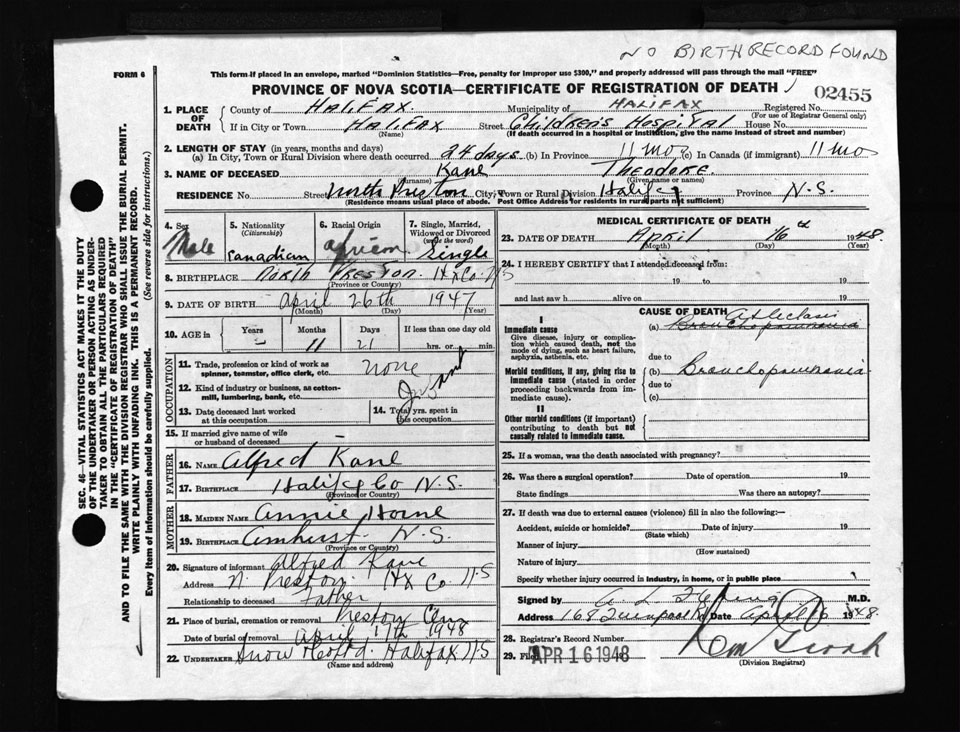 NO BIRTH RECORD FOUND
FORM 6
This form if placed in an envelope, marked "Dominion Statistics—Free, penalty for improper use $300," and properly addressed will pass through the mail "FREE"
PROVINCE OF NOVA SCOTIA—CERTIFICATE OF REGISTRATION OF DEATH
02455
1. PLACE OF DEATH
County of HALIFAX. Municipality of HALIFAX Registered No.
(For use of Registrar General only)
If in City or Town HALIFAX Street Children's Hospital House No.
(Name) (If death occurred in a hospital or institution, give the name instead of street and number)
2. LENGTH OF STAY (in years, months and days)
(a) In City, Town or Rural Division where death occurred 24 days (b) In Province 11 mos (c) In Canada (if immigrant) 11 mos
3. NAME OF DECEASED Kane THEODORE.
(Surname) (Given name or names)
RESIDENCE No. Street North Preston City, Town or Rural Division Halifax Province N.S.
(Residence means usual place of abode. Post Office Address for residents in rural parts not sufficient)
4. Sex Male
5. Nationality (Citizenship) Canadian
6. Racial Origin African
7. Single, Married, Widowed or Divorced (write the word) Single
8. BIRTHPLACE North PRESTON. Hx Co. N.S
(Province or Country)
9. DATE OF BIRTH April 26th 1947
(Month) (Day) (Year)
10. AGE in Years Months Days If less than one day old
11 21 hrs. or min.
OCCUPATION
11. Trade, profession or kind of work as spinner, teamster, office clerk, etc. none
12. Kind of industry or business, as cotton-mill, lumbering, bank, etc. Infant
13. Date deceased last worked at this occupation
14. Total yrs. spent in this occupation
15. If married give name of wife or husband of deceased
FATHER
16. NAME Alfred Kane
17. BIRTHPLACE Halifx Co N.S.
(Province or Country)
MOTHER
18. MAIDEN NAME Annie
19. BIRTHPLACE Amherst N.S.
(Province or Country)
20. Signature of informant Alfred Kane
Address N. Preston. Hx Co. N.S
Relationship to deceased Father
21. Place of burial, cremation or removal Preston
Date of burial or removal April 17th 1948
22. UNDERTAKER Snow & Co Ltd. Halifax N.S
(Name and address)
MEDICAL CERTIFICATE OF DEATH
23. DATE OF DEATH April 16th 1948
(Month) (Day) (Year)
24. I HEREBY CERTIFY that I attended deceased from:
19 to 19
and last saw h alive on 19
CAUSE OF DEATH
I
Immediate cause
Give disease, injury or complication which caused death, not the mode of dying, such as heart failure, asphyxia, asthenia, etc.
(a) Bronchopneumonia Atelectasis
due to
Morbid conditions, if any, giving rise to immediate cause (stated in order proceeding backwards from immediate cause).
(b) Bronchopneumonia
due to
(c)
II
Other morbid conditions (if important) contributing to death but not causally related to immediate cause.
25. If a woman, was the death associated with pregnancy?
26. Was there a surgical operation? Date of operation 19
State findings Was there an autopsy?
27. If death was due to external causes (violence) fill in also the following:—
Accident, suicide or homicide? Date of injury 19
(State which)
Manner of injury
(How sustained)
Nature of injury
Specify whether injury occurred in industry, in home, or in public place
Signed by M.D.
Address Date April 16 1948.
28. Registrar's Record Number
29. Filed APR 16 1948
(Division Registrar)
SEC. 46—VITAL STATISTICS ACT MAKES IT THE DUTY
OF THE UNDERTAKER OR PERSON ACTING AS UNDERTAKER TO OBTAIN ALL THE PARTICULARS REQUIRED
IN THE "CERTIFICATE OF REGISTRATION OF DEATH"
AND TO FILE THE SAME WITH THE DIVISION REGISTRAR WHO SHALL ISSUE THE BURIAL PERMIT.
WRITE PLAINLY WITH UNFADING INK. THIS IS A PERMANENT RECORD.
Every item of information should be carefully supplied. (See reverse side for instructions.)